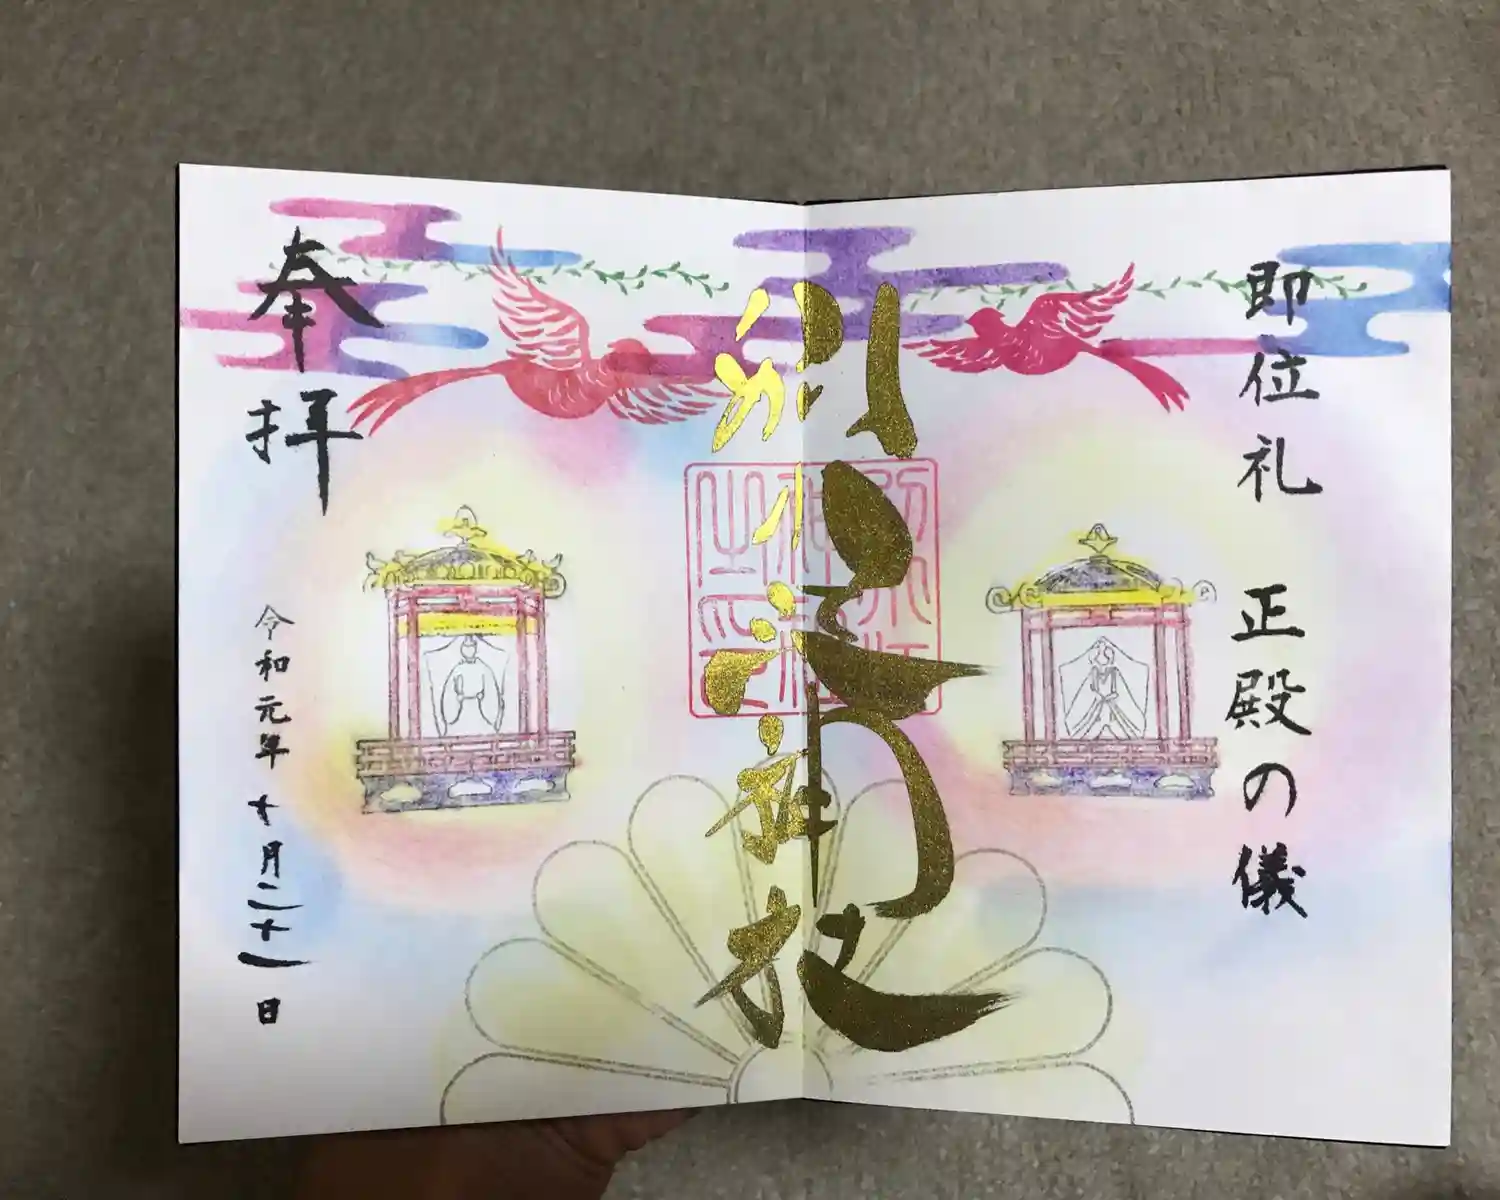 即位礼 正殿の儀
別小江神社
奉拝
令和元年 十月二十二日